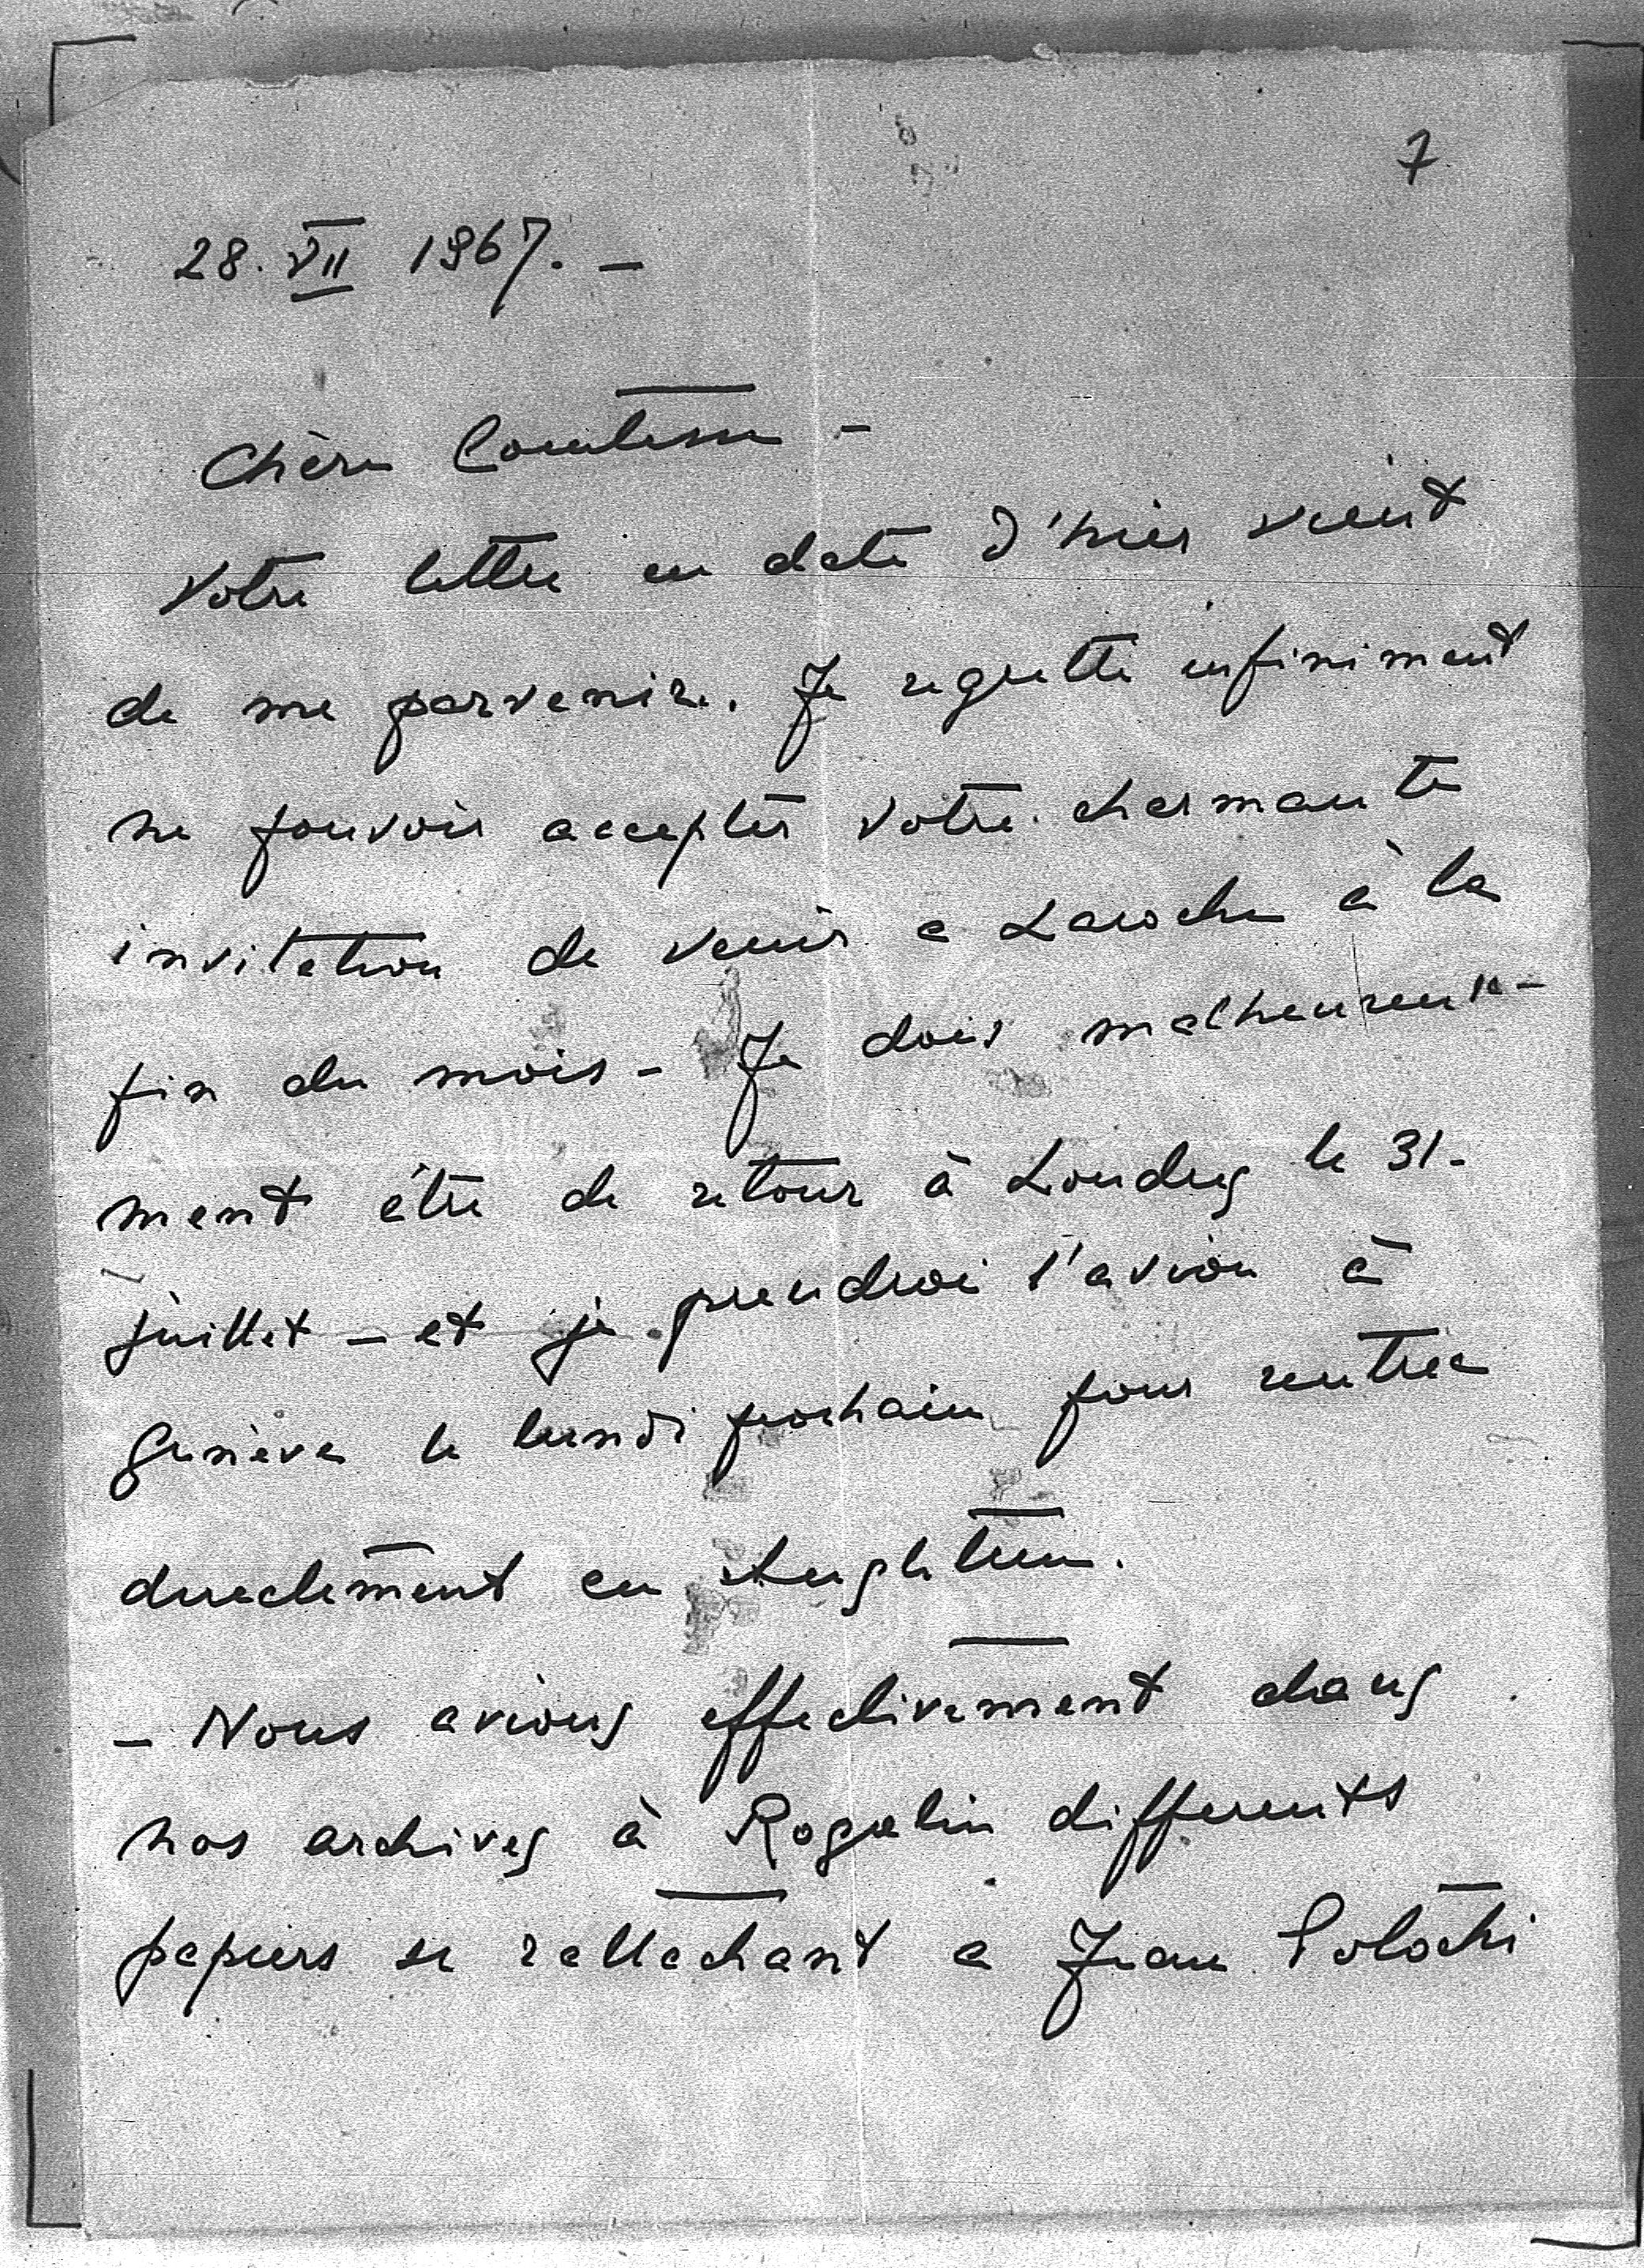 7
28. VII 1967. -
Chère Comtesse -
Votre lettre en date d'hier vient
de me parvenir. Je regrette infiniment
ne pouvoir accepter votre charmante
invitation de venir a Laroche à la
fin du mois - Je dois malheureuse-
ment être de retour à Londres le 31 -
juillet - et je prendrai l'avion à
Genève le lundi prochain pour rentrer
directement en Angleterre.
- Nous avions effectivement dans
nos archives à Rogalin differents
papiers se rattachant a Jean Potocki